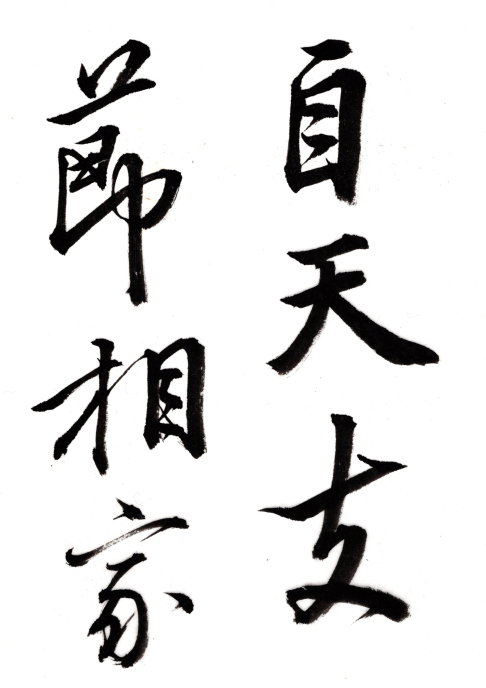 自天支
節相家